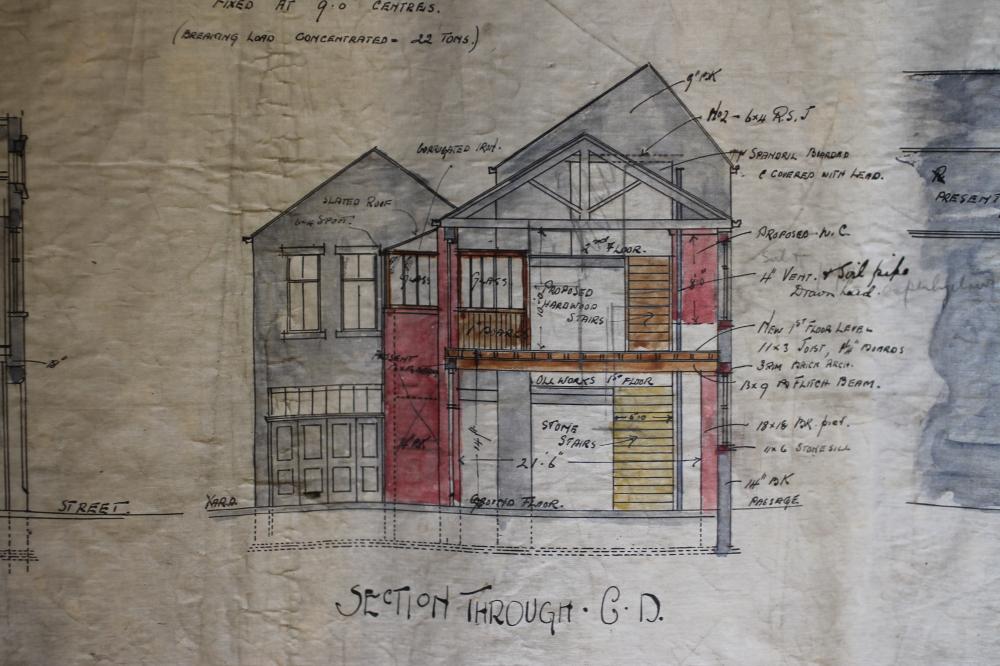 FIXED AT 9.0 CENTRES.
(BREAKING LOAD CONCENTRATED = 22 TONS.)
9" BK
No2 - 6x4 R.S.J
CORRUGATED IRON.
SPANDRIL BOARDED
& COVERED WITH LEAD.
PRESENT
SLATED ROOF
6x4 SPOUT.
2nd FLOOR.
PROPOSED W.C
8'.0"
4" VENT. & Soil pipe
Drawn Lead.
GLASS
GLASS
PROPOSED
HARDWOOD
STAIRS
10'.0"
1" BOARDS
NEW 1ST FLOOR LEVEL
11x3 JOIST, 1¼" BOARDS
3 RIM BRICK ARCH.
13x9 FLITCH BEAM.
PRESENT
OLD WORKS 1ST FLOOR
6'.0
STONE
STAIRS
18x18 BK. pier.
11x6 STONE SILL
21'.6"
14" BK
PASSAGE
STREET.
YARD
GROUND FLOOR.
SECTION THROUGH. C. D.